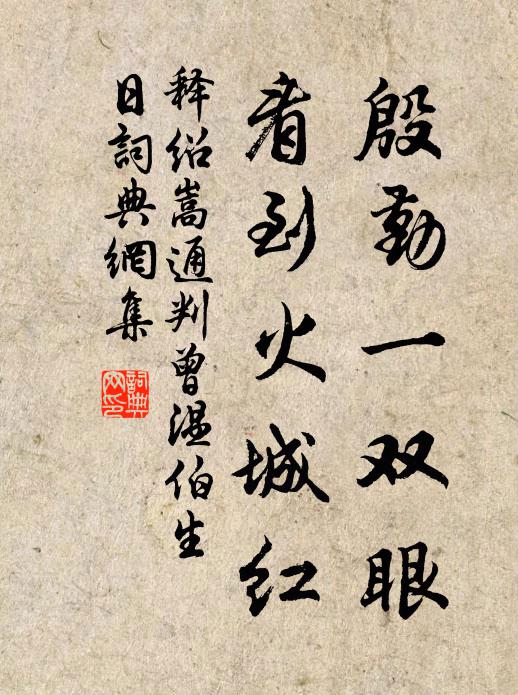 殷勤一双眼
看到火城红
释绍嵩通判曾温伯生
日詞典網集
詞典
网印